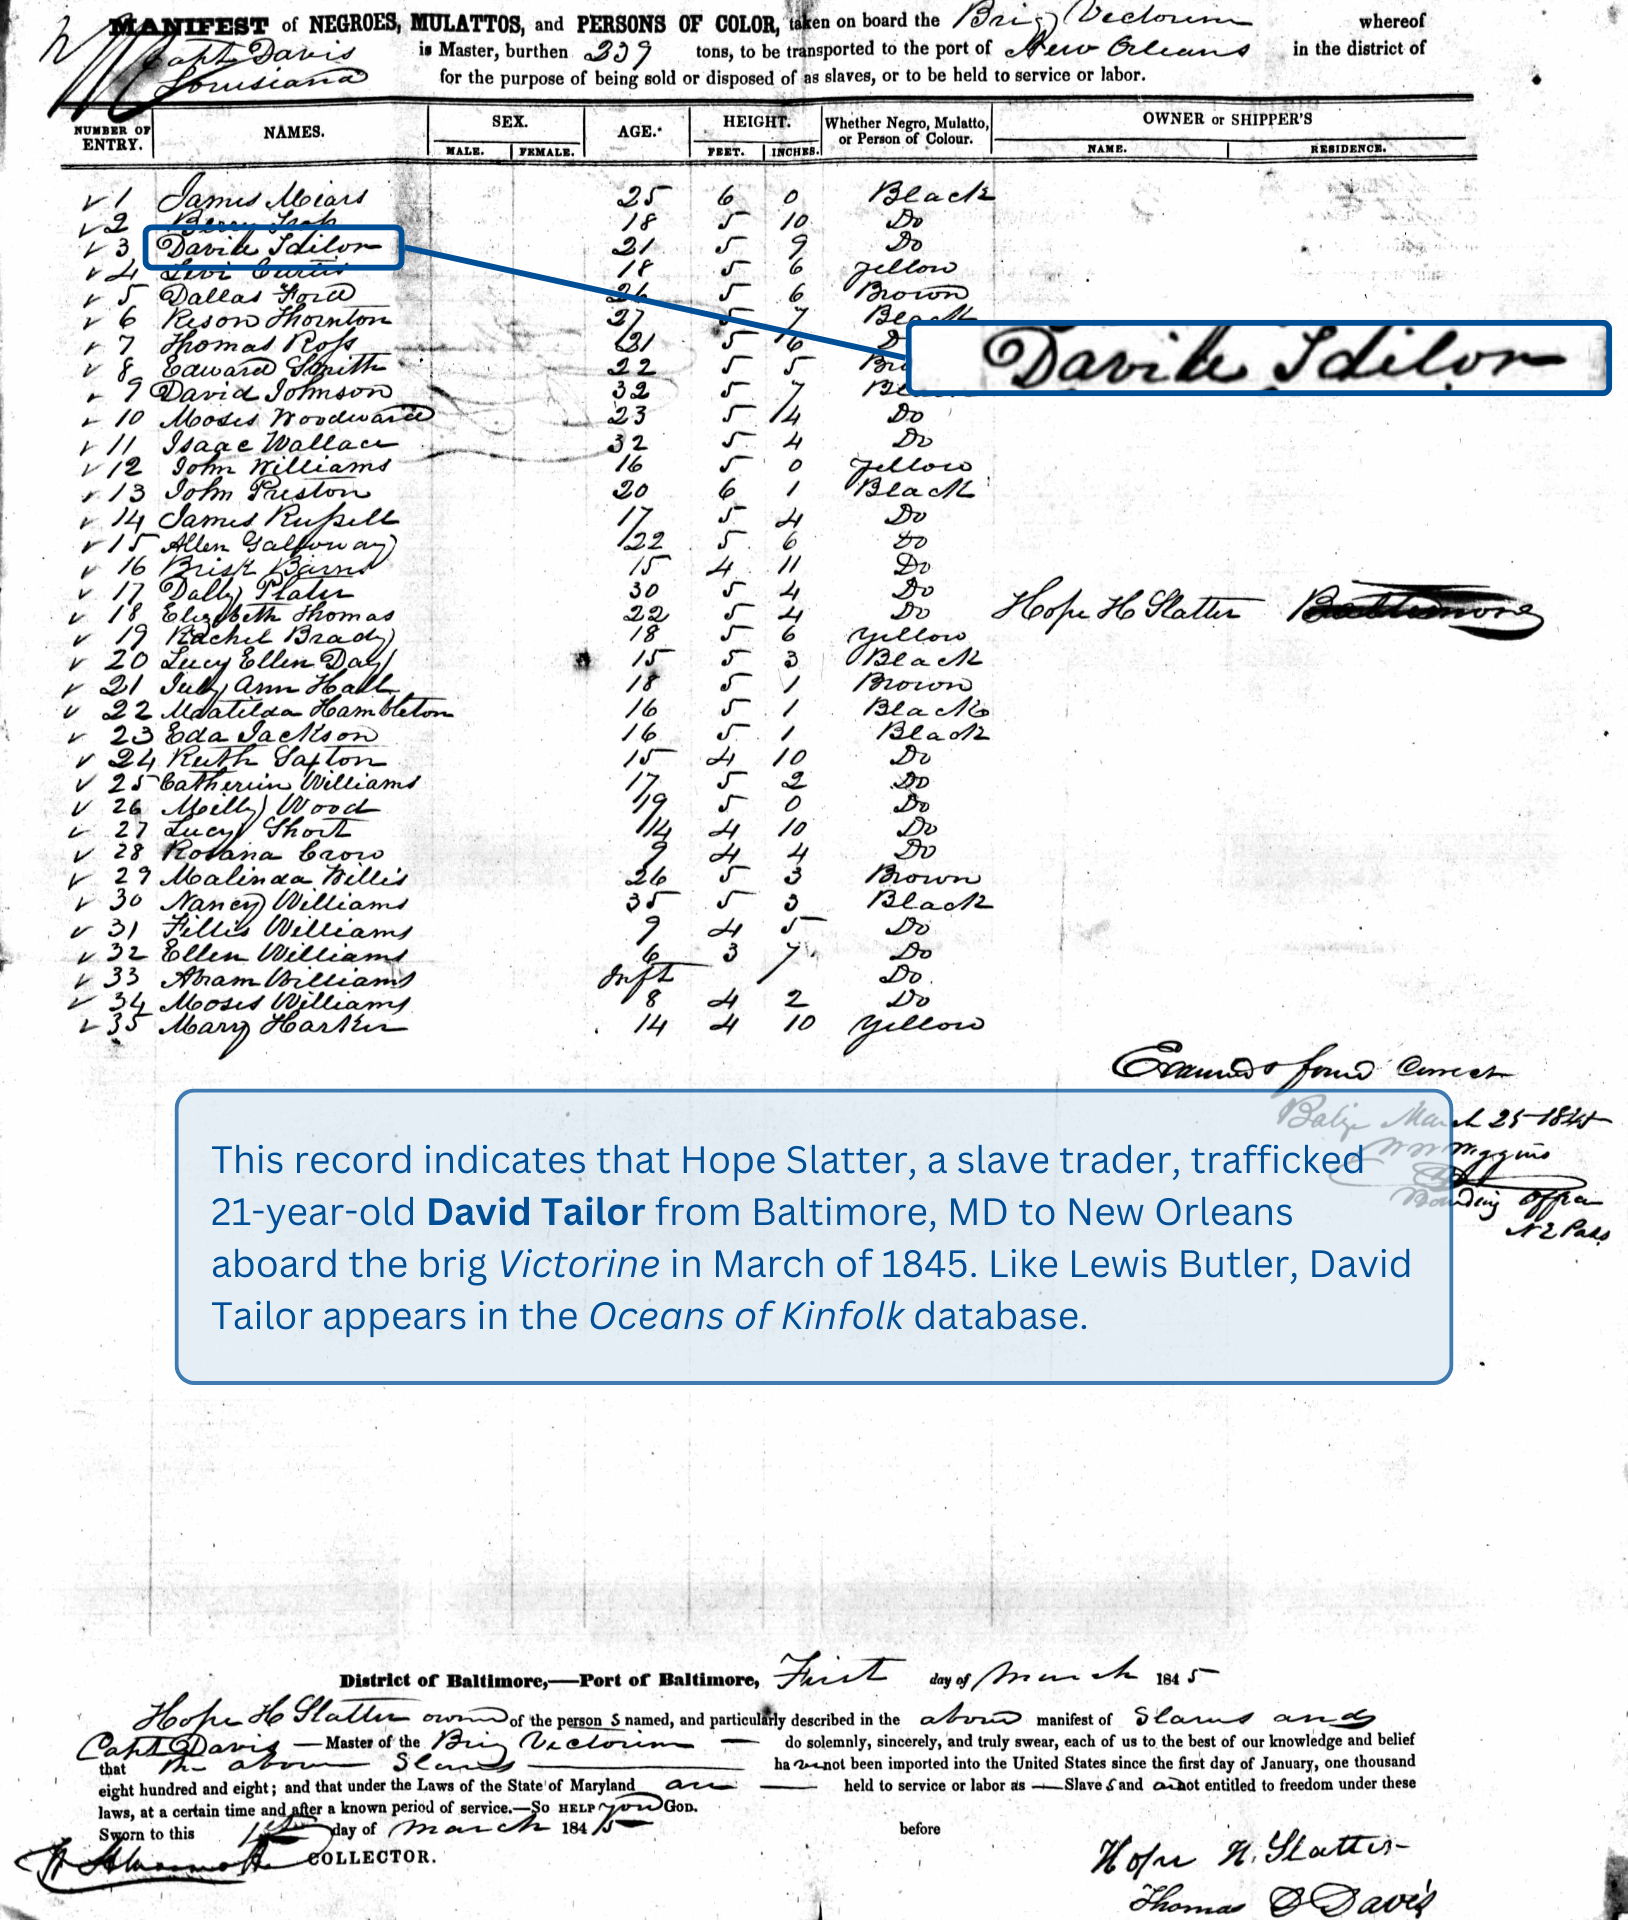 MANIFEST of NEGROES, MULATTOS, and PERSONS OF COLOR, taken on board the Brig Victorine whereof
Capt Davis is Master, burthen 239 tons, to be transported to the port of New Orleans in the district of
Louisiana for the purpose of being sold or disposed of as slaves, or to be held to service or labor.
NUMBER OF ENTRY. NAMES. SEX. MALE. FEMALE. AGE. HEIGHT. FEET. INCHES. Whether Negro, Mulatto, or Person of Colour. OWNER or SHIPPER'S NAME. RESIDENCE.
1 James Miars 25 6 0 Black
2 18 5 10 Do
3 David Tailor 21 5 9 Do
4 Levi Curtis 18 5 6 yellow
5 Dallas Ford 26 5 6 Brown
6 Reson Thornton 27 5 7 Black
7 Thomas Ross 21 5 6
8 Edward Smith 22 5 5
9 David Johnson 32 5 7
David Tailor
10 Moses Woodward 23 5 4 Do
11 Isaac Wallace 32 5 4 Do
12 John Williams 16 5 0 yellow
13 John Preston 20 6 1 Black
14 James Russell 17 5 4 Do
15 Allen Galloway 22 5 6 Do
16 Brisk Barns 15 4 11 Do
17 Dolly Plater 30 5 4 Do
18 Elizabeth Thomas 22 5 4 Do Hope H Slatter Baltimore
19 Rachel Brady 18 5 6 yellow
20 Lucy Ellen Day 15 5 3 Black
21 July Ann Hall 18 5 1 Brown
22 Maatilda Hambleton 16 5 1 Black
23 Eda Jackson 16 5 1 Black
24 Ruth Saxton 15 4 10 Do
25 Catherin Williams 17 5 2 Do
26 Milly Wood 19 5 0 Do
27 Lucy Short 14 4 10 Do
28 Rosana Crow 9 4 4 Do
29 Malinda Willis 26 5 3 Brown
30 Nancy Williams 35 5 3 Black
31 Fillis Williams 9 4 5 Do
32 Ellen Williams 6 3 7 Do
33 Abram Williams Inft Do
34 Moses Williams 8 4 2 Do
35 Mary Harker 14 4 10 yellow
Examined & found Correct
Balize March 25 1845
Wiggins
Boarding Officer
This record indicates that Hope Slatter, a slave trader, trafficked
21-year-old David Tailor from Baltimore, MD to New Orleans
aboard the brig Victorine in March of 1845. Like Lewis Butler, David
Tailor appears in the Oceans of Kinfolk database.
District of Baltimore,—Port of Baltimore, First day of March 1845
Hope H Slatter owner of the person s named, and particularly described in the above manifest of Slaves and
Capt Davis —Master of the Brig Victorine — do solemnly, sincerely, and truly swear, each of us to the best of our knowledge and belief
that the above Slaves have not been imported into the United States since the first day of January, one thousand
eight hundred and eight; and that under the Laws of the State of Maryland are — held to service or labor as — Slaves and are not entitled to freedom under these
laws, at a certain time and after a known period of service.—So HELP you GOD.
Sworn to this 1st day of March 1845 before
COLLECTOR.
Hope H. Slatter
Thomas Davis